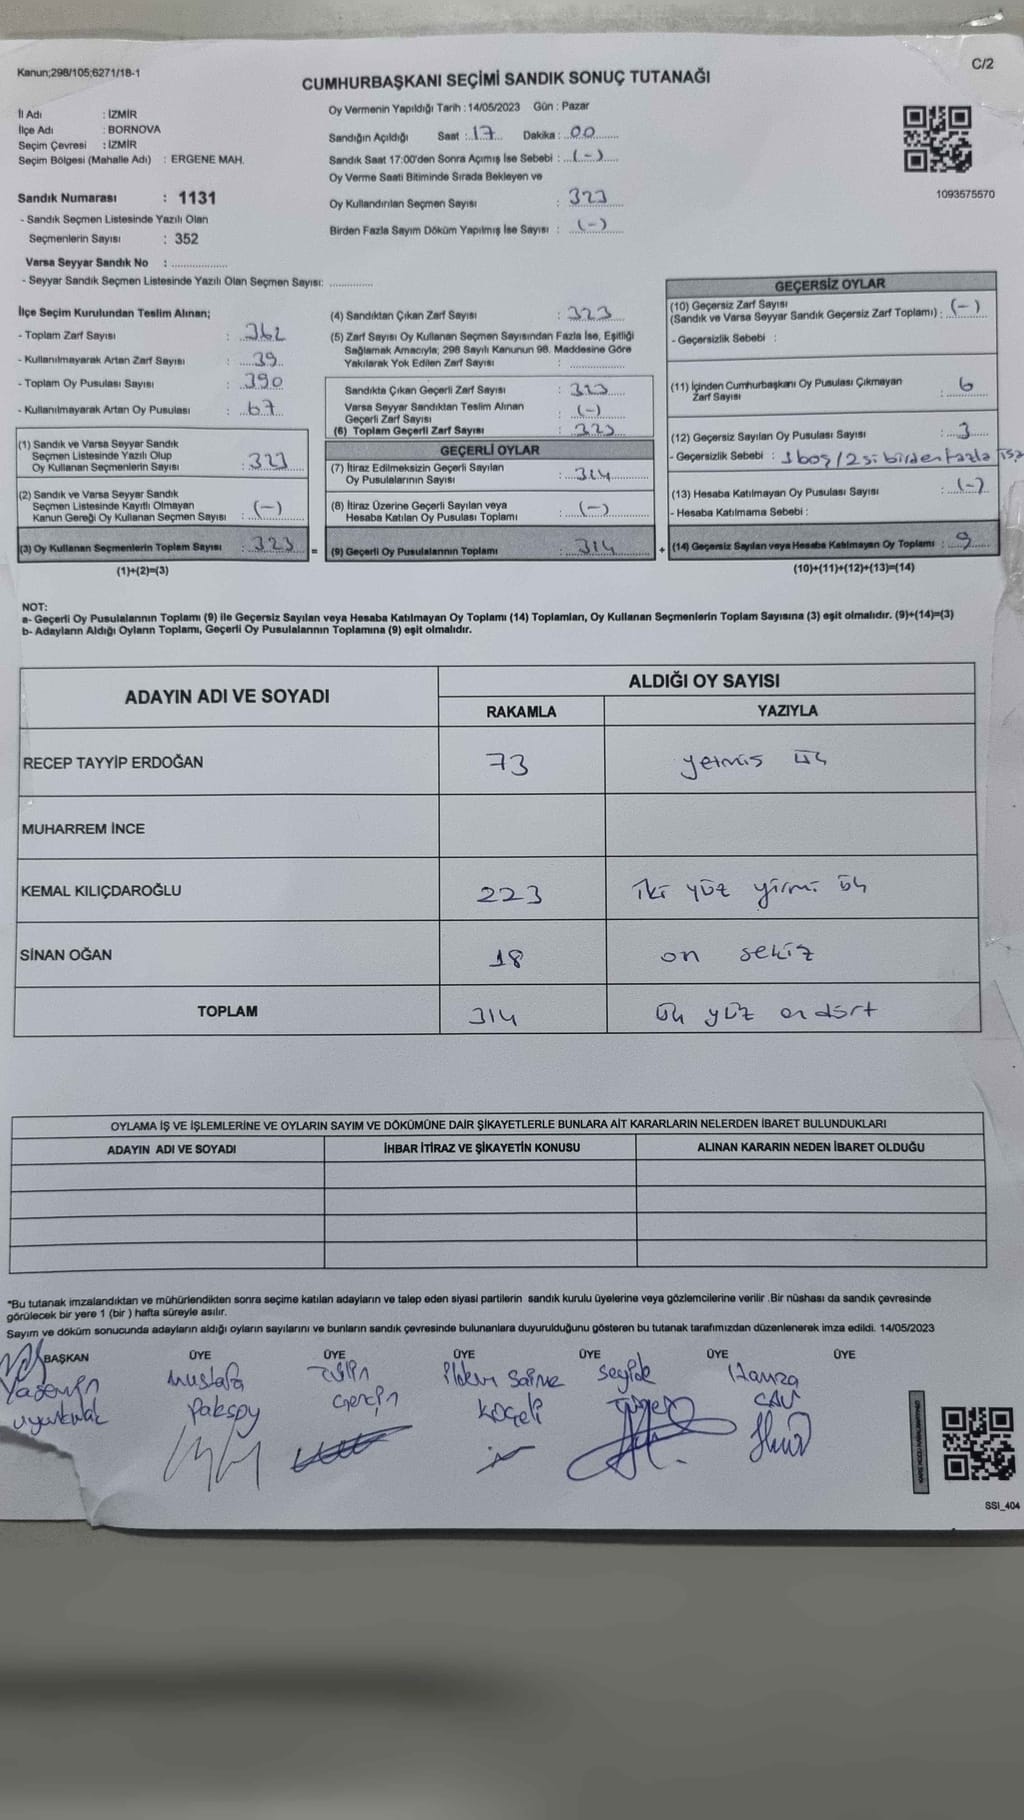 Kanun;298/105;6271/18-1
C/2
CUMHURBAŞKANI SEÇİMİ SANDIK SONUÇ TUTANAĞI
İl Adı : İZMİR
İlçe Adı : BORNOVA
Seçim Çevresi : İZMİR
Seçim Bölgesi (Mahalle Adı) : ERGENE MAH.
Sandık Numarası : 1131
- Sandık Seçmen Listesinde Yazılı Olan
Seçmenlerin Sayısı : 352
Varsa Seyyar Sandık No : ..................
- Seyyar Sandık Seçmen Listesinde Yazılı Olan Seçmen Sayısı: ..............
Oy Vermenin Yapıldığı Tarih : 14/05/2023 Gün : Pazar
Sandığın Açıldığı Saat : 17 Dakika : 00
Sandık Saat 17:00'den Sonra Açımış İse Sebebi : (-)
Oy Verme Saati Bitiminde Sırada Bekleyen ve
Oy Kullandırılan Seçmen Sayısı : 323
Birden Fazla Sayım Döküm Yapılmış İse Sayısı : (-)
1093575570
İlçe Seçim Kurulundan Teslim Alınan;
- Toplam Zarf Sayısı : 362
- Kullanılmayarak Artan Zarf Sayısı : 39
- Toplam Oy Pusulası Sayısı : 390
- Kullanılmayarak Artan Oy Pusulası : 67
(1) Sandık ve Varsa Seyyar Sandık
Seçmen Listesinde Yazılı Olup
Oy Kullanan Seçmenlerin Sayısı : 323
(2) Sandık ve Varsa Seyyar Sandık
Seçmen Listesinde Kayıtlı Olmayan
Kanun Gereği Oy Kullanan Seçmen Sayısı : (-)
(3) Oy Kullanan Seçmenlerin Toplam Sayısı : 323
(1)+(2)=(3)
(4) Sandıktan Çıkan Zarf Sayısı : 323
(5) Zarf Sayısı Oy Kullanan Seçmen Sayısından Fazla İse, Eşitliği
Sağlamak Amacıyla, 298 Sayılı Kanunun 98. Maddesine Göre
Yakılarak Yok Edilen Zarf Sayısı : ..............
Sandıkta Çıkan Geçerli Zarf Sayısı : 323
Varsa Seyyar Sandıktan Teslim Alınan
Geçerli Zarf Sayısı : (-)
(6) Toplam Geçerli Zarf Sayısı : 323
GEÇERLİ OYLAR
(7) İtiraz Edilmeksizin Geçerli Sayılan
Oy Pusulalarının Sayısı : 314
(8) İtiraz Üzerine Geçerli Sayılan veya
Hesaba Katılan Oy Pusulası Toplamı : (-)
= (9) Geçerli Oy Pusulalarının Toplamı : 314
GEÇERSİZ OYLAR
(10) Geçersiz Zarf Sayısı
(Sandık ve Varsa Seyyar Sandık Geçersiz Zarf Toplamı) : (-)
- Geçersizlik Sebebi :
(11) İçinden Cumhurbaşkanı Oy Pusulası Çıkmayan
Zarf Sayısı : 6
(12) Geçersiz Sayılan Oy Pusulası Sayısı : 3
- Geçersizlik Sebebi : 1 boş / 2 si birden fazla
(13) Hesaba Katılmayan Oy Pusulası Sayısı : (-)
- Hesaba Katılmama Sebebi :
+ (14) Geçersiz Sayılan veya Hesaba Katılmayan Oy Toplamı : 9
(10)+(11)+(12)+(13)=(14)
NOT:
a- Geçerli Oy Pusulalarının Toplamı (9) ile Geçersiz Sayılan veya Hesaba Katılmayan Oy Toplamı (14) Toplamları, Oy Kullanan Seçmenlerin Toplam Sayısına (3) eşit olmalıdır. (9)+(14)=(3)
b- Adayların Aldığı Oyların Toplamı, Geçerli Oy Pusulalarının Toplamına (9) eşit olmalıdır.
ADAYIN ADI VE SOYADI
ALDIĞI OY SAYISI
RAKAMLA YAZIYLA
RECEP TAYYİP ERDOĞAN 73 yetmiş üç
MUHARREM İNCE
KEMAL KILIÇDAROĞLU 223 iki yüz yirmi üç
SİNAN OĞAN 18 on sekiz
TOPLAM 314 üç yüz ondört
OYLAMA İŞ VE İŞLEMLERİNE VE OYLARIN SAYIM VE DÖKÜMÜNE DAİR ŞİKAYETLERLE BUNLARA AİT KARARLARIN NELERDEN İBARET BULUNDUKLARI
ADAYIN ADI VE SOYADI İHBAR İTİRAZ VE ŞİKAYETİN KONUSU ALINAN KARARIN NEDEN İBARET OLDUĞU
*Bu tutanak imzalandıktan ve mühürlendikten sonra seçime katılan adayların ve talep eden siyasi partilerin sandık kurulu üyelerine veya gözlemcilerine verilir .Bir nüshası da sandık çevresinde
görülecek bir yere 1 (bir ) hafta süreyle asılır.
Sayım ve döküm sonucunda adayların aldığı oyların sayılarını ve bunların sandık çevresinde bulunanlara duyurulduğunu gösteren bu tutanak tarafımızdan düzenlenerek imza edildi. 14/05/2023
BAŞKAN ÜYE ÜYE ÜYE ÜYE ÜYE ÜYE
Yasemin Mustafa Saime Seyide Hamza
Paksoy Koçeli
SSI_404